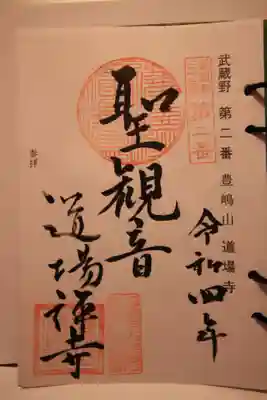 武蔵野 第二番 豊嶋山 道場寺
令和四年
聖観音
道場禅寺
参拝